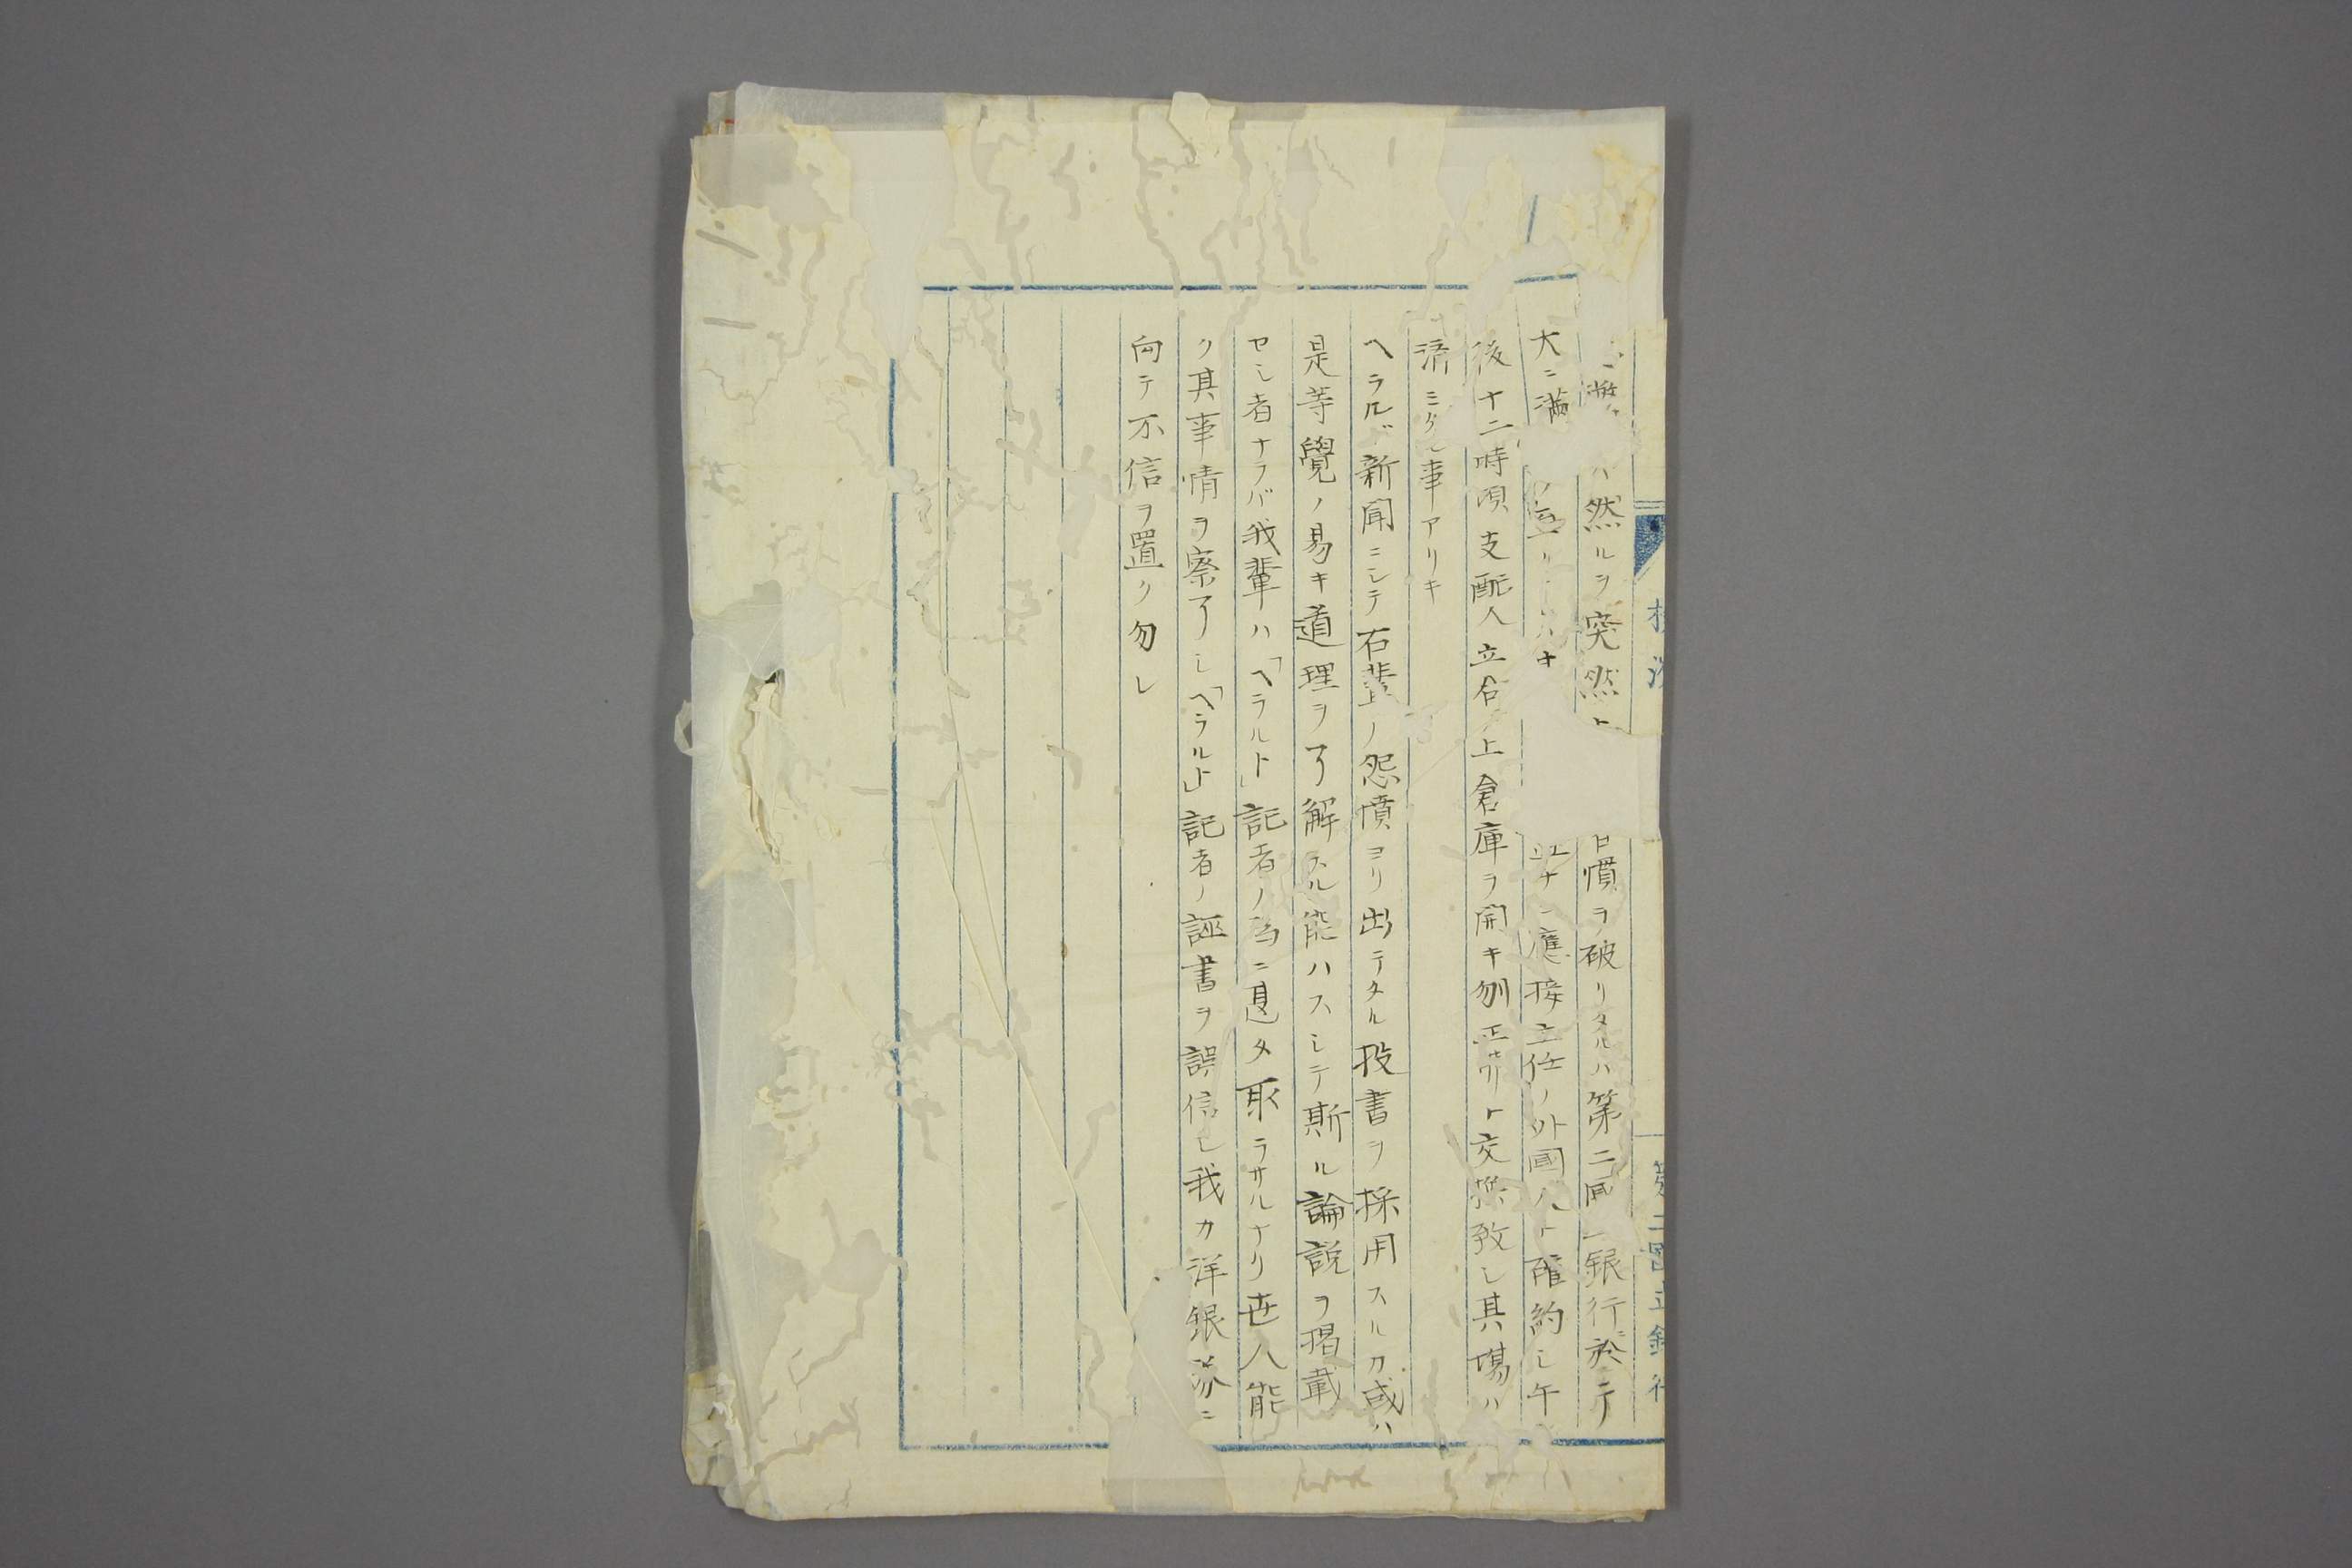 ハ然ルヲ突然ト 慣ヲ破リタルハ第二回銀行ニ於テ
大ニ満 ナ ニ應接主任ノ外國人ト確約シ午
後十二時頃支配人立合ノ上倉庫ヲ開キ刎正弗ト交換致シ其場ハ
済ミタル事アリキ
ヘラルド新聞ニシテ右輩ノ怨憤ヨリ出テタル投書ヲ採用スルカ或ハ
是等覺ノ易キ道理ヲ了解スル能ハスシテ斯ル論説ヲ掲載
セシ者ナラバ我輩ハ「ヘラルト」記者ノ為ニ甚タ取ラサルナリ世人能
ク其事情ヲ察了シ「ヘラルト」記者ノ誣書ヲ誤信シ我カ洋銀券ニ
向テ不信ヲ置ク勿レ
第二國立銀行